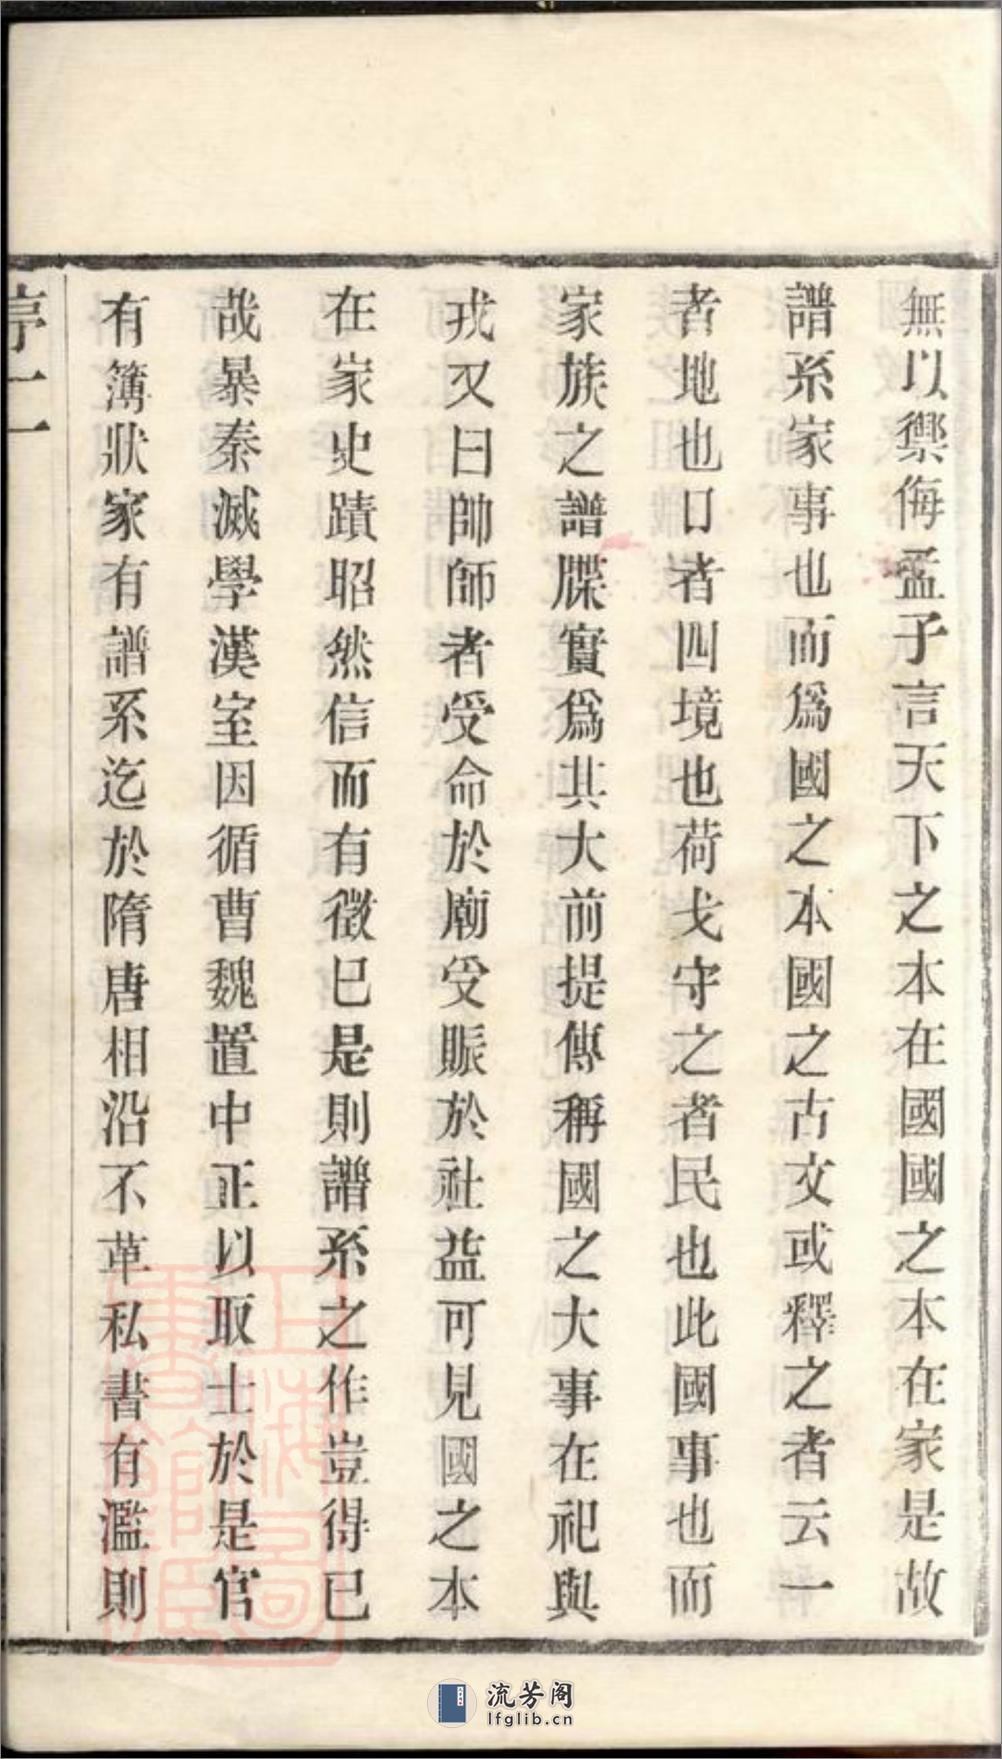 無以禦侮孟子言天下之本在國國之本在家是故
譜系家事也而爲國之本國之古文或釋之者云一
者地也口者四境也荷戈守之者民也此國事也而
家族之譜牒實爲其大前提傳稱國之大事在祀與
戎又曰帥師者受命於廟受脤於社益可見國之本
在家史蹟昭然信而有徵已是則譜系之作豈得已
哉暴秦滅學漢室因循曹魏置中正以取士於是官
有簿狀家有譜系迄於隋唐相沿不革私書有濫則
序二
上海圖書館藏
流芳阁
lfglib.cn